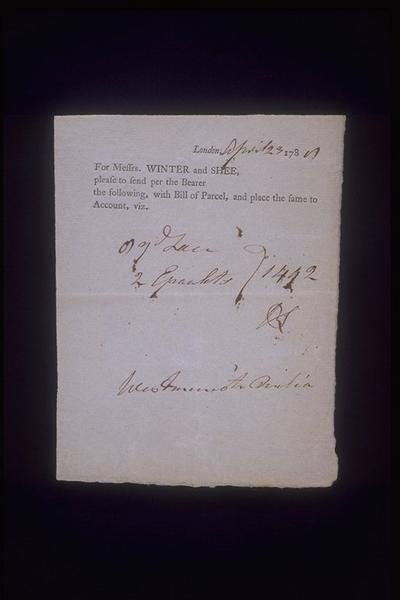 London, April 23 178
For Meſſrs. WINTER and SHEE,
pleaſe to ſend per the Bearer
the following, with Bill of Parcel, and place the ſame to
Account, viz.
yd Lace
2 Epaulets 1442
Westminster